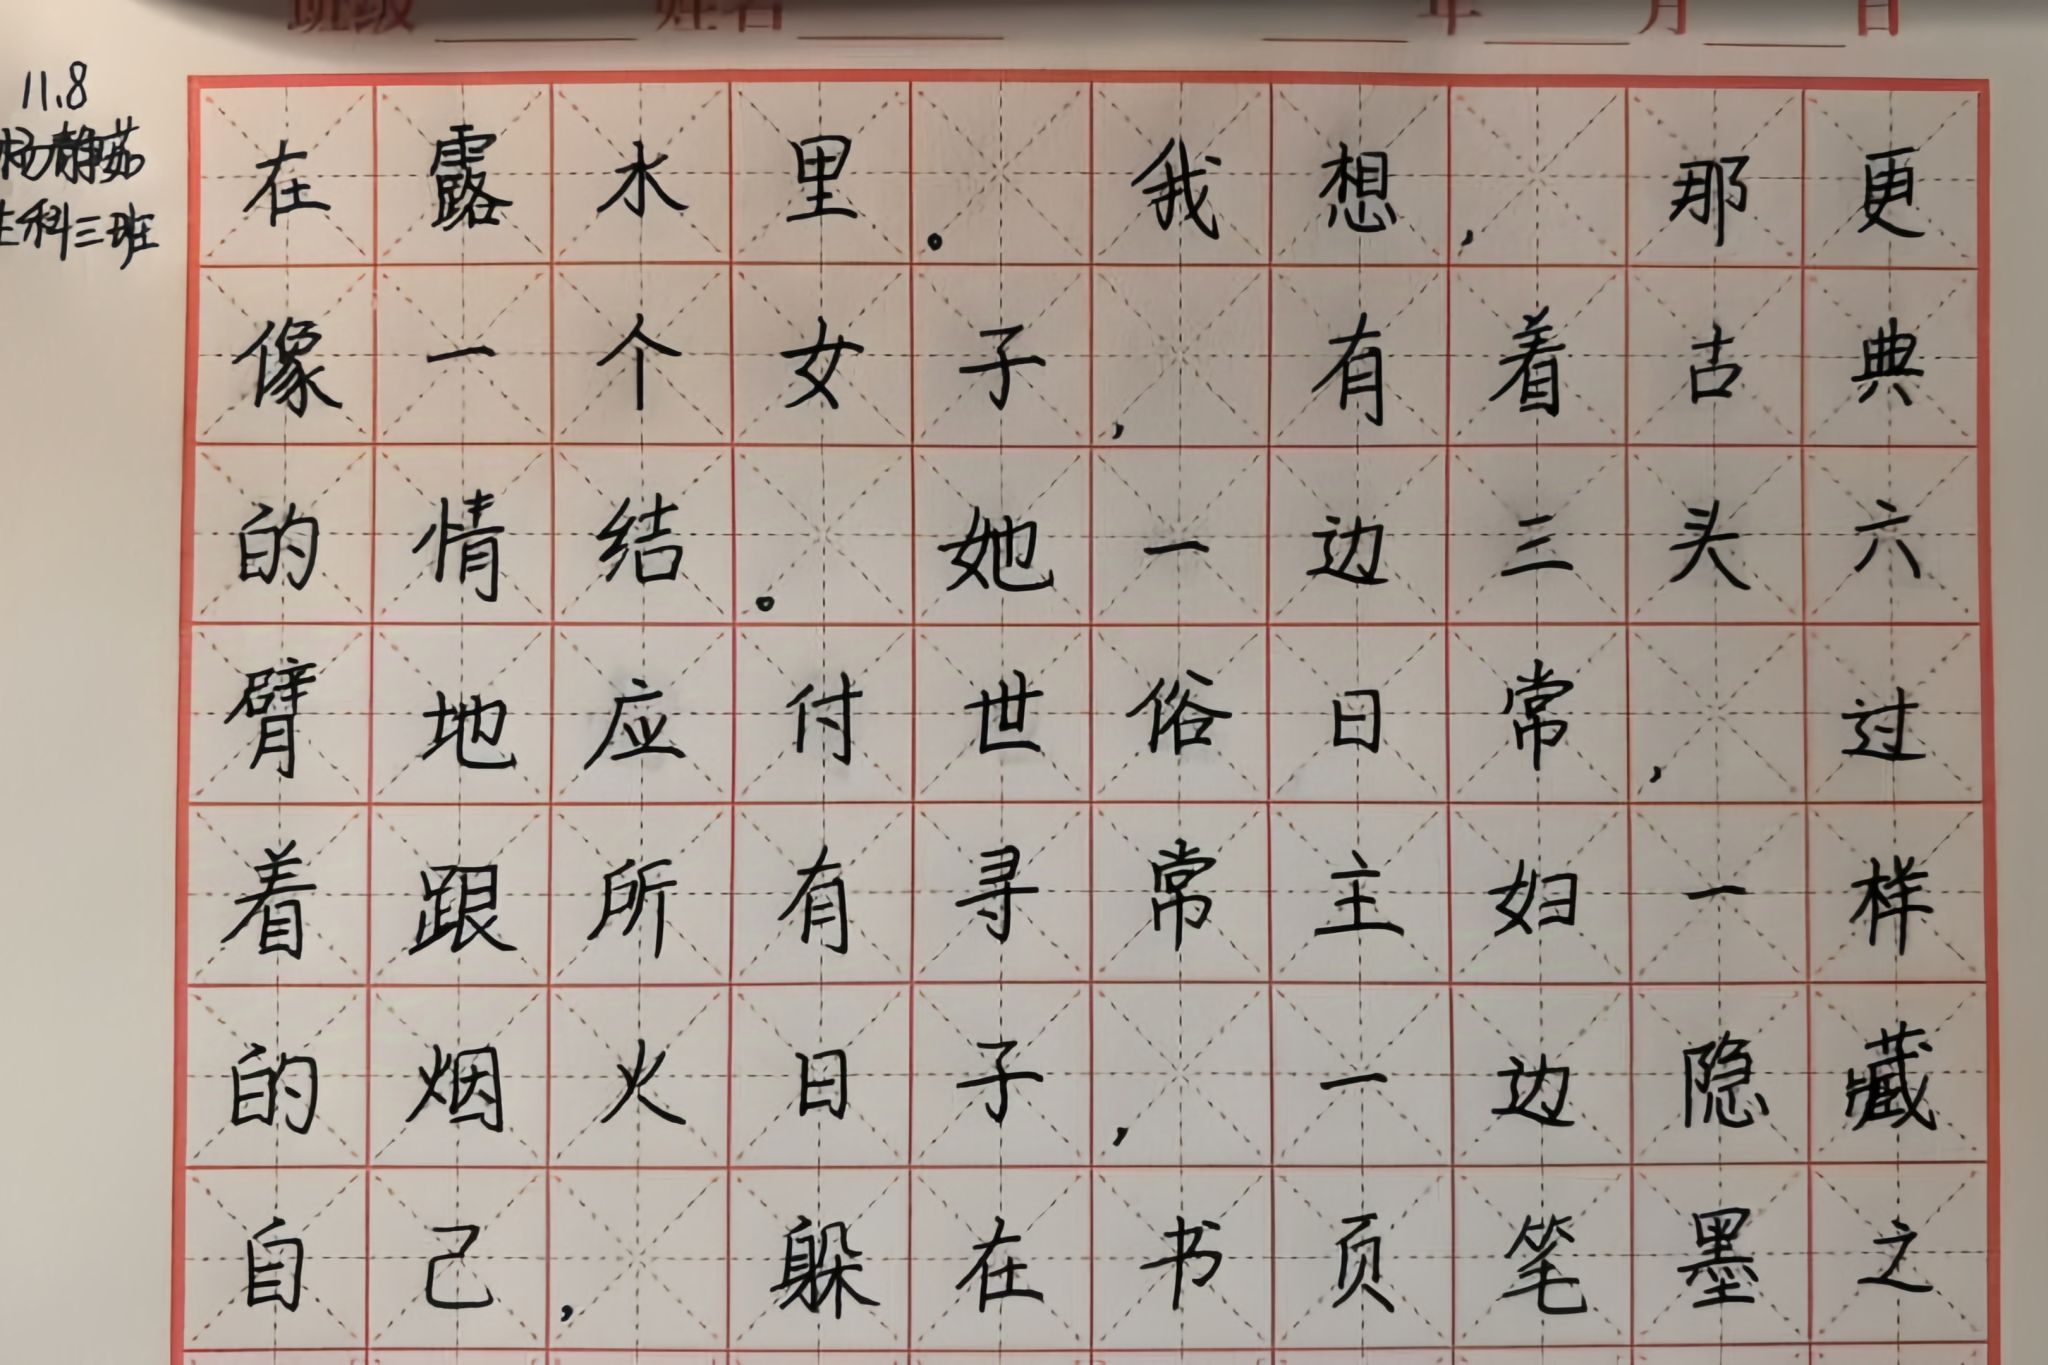 班级 姓名 年 月 日
11.8
杨静茹
生科三班
在露水里。我想,那更
像一个女子,有着古典
的情结。她一边三头六
臂地应付世俗日常,过
着跟所有寻常主妇一样
的烟火日子,一边隐藏
自己,躲在书页笔墨之